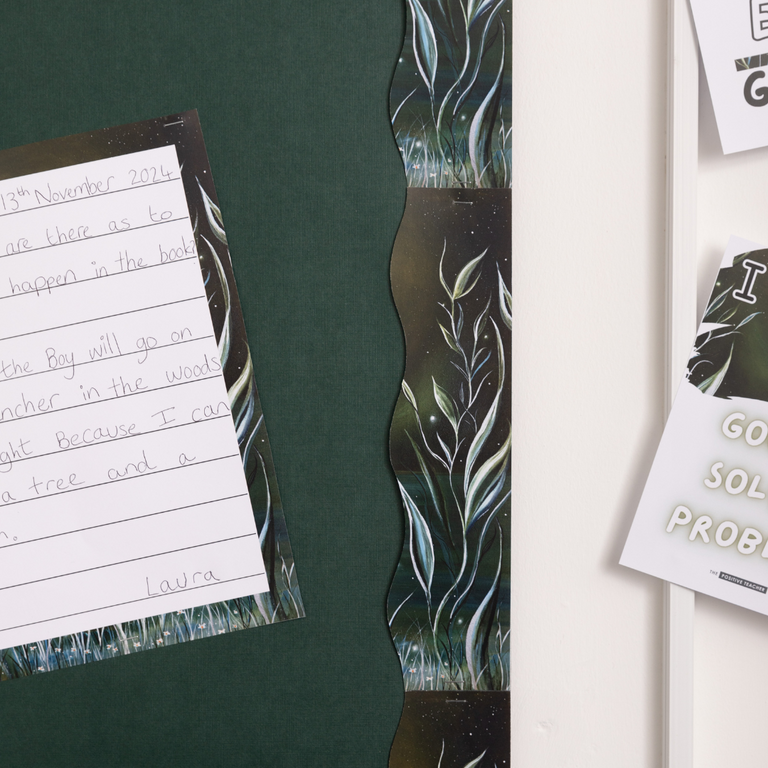 13th November 2024
are there as to
happen in the book?
the Boy will go on
in the woods
Because I can
a tree and a
Laura
G
I
GO
SOL
PROB
THE POSITIVE TEACHER